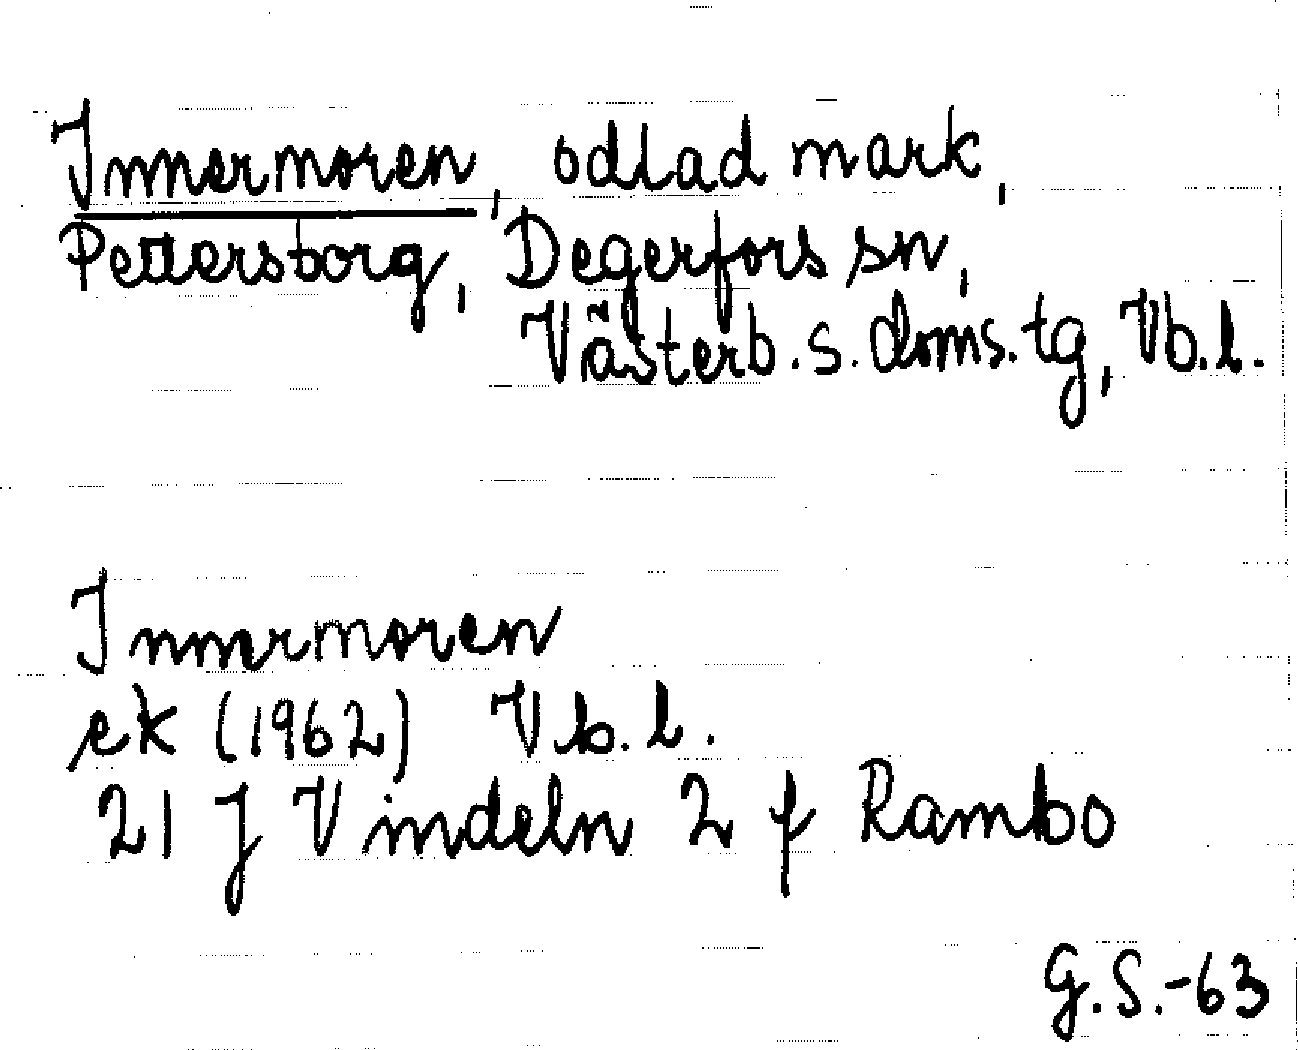 Innermoren, odlad mark,
Pettersborg, Degerfors sn,
Västerb. s. doms. tg, Vb. l.
Innermoren
ek (1962) Vb. l.
21 J Vindeln 2 f Rambo
G. S. -63